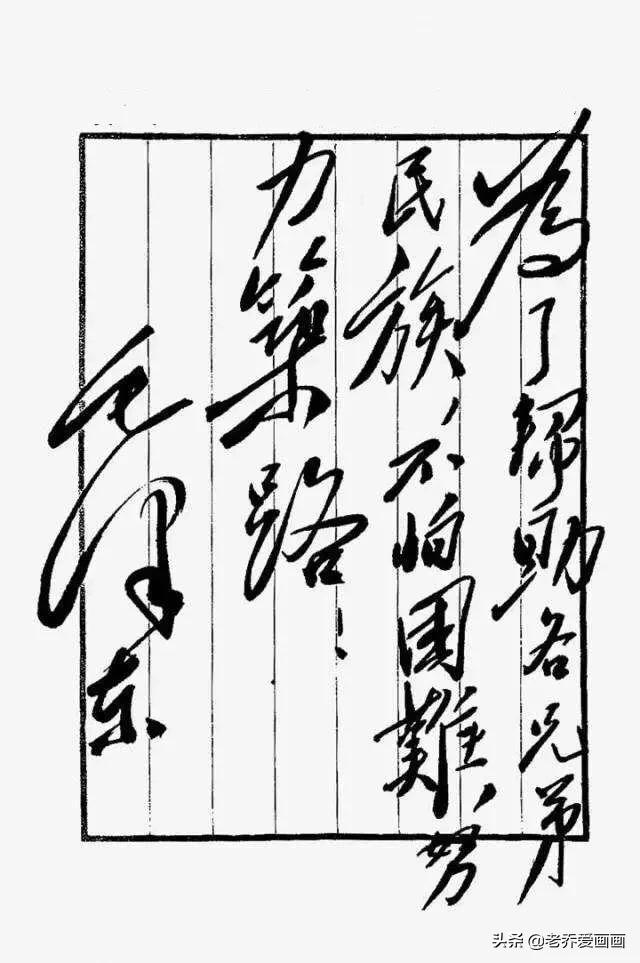 為了帮助各兄弟
民族，不怕困難，努
力築路！
毛澤东
头条 @老乔爱画画